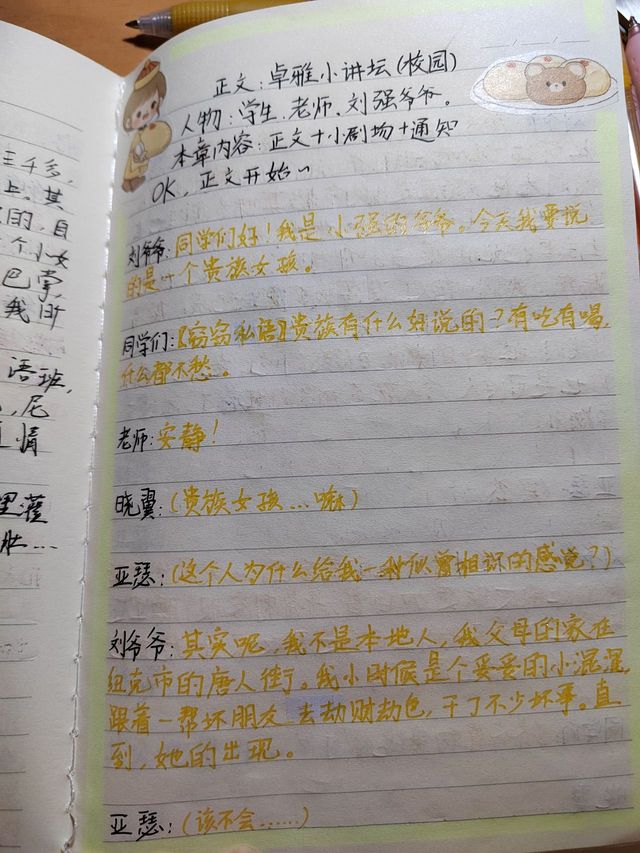 三千多,
上。其
的,自
个小女
巴掌,
我所
语班,
,尼
直情
里灌
肽…
正文:卓雅小讲坛(校园)
人物:学生、老师、刘强爷爷。
本章内容:正文+小剧场+通知
OK,正文开始~
刘爷爷:同学们好!我是小强的爷爷。今天我要说
的是一个贵族女孩。
同学们:【窃窃私语】贵族有什么好说的?有吃有喝,
什么都不愁。
老师:安静!
晓翼:(贵族女孩…嘛)
亚瑟:(这个人为什么给我一种似曾相识的感觉?)
刘爷爷:其实呢,我不是本地人,我父母的家在
纽克市的唐人街。我小时候是个妥妥的小混混,
跟着一帮坏朋友 去劫财劫色,干了不少坏事。直
到,她的出现。
亚瑟:(该不会……)